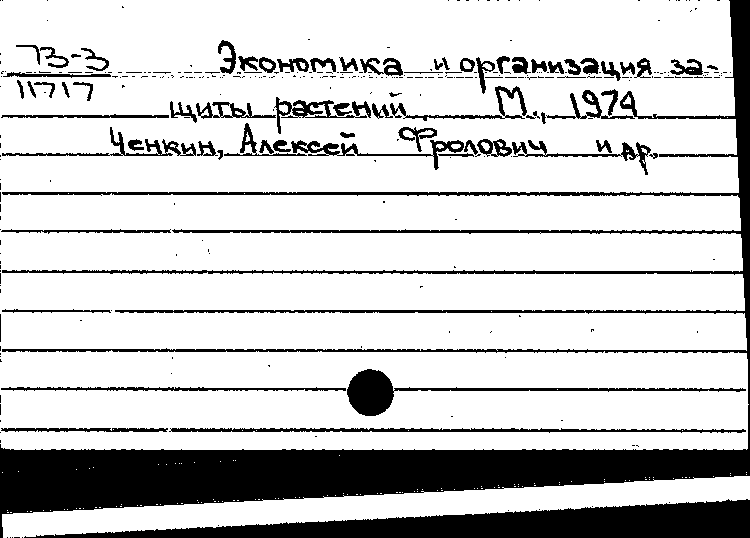 73-3 Экономика и организация за-
11717 щиты растений. М., 1974.
Ченкин, Алексей Фролович и др.